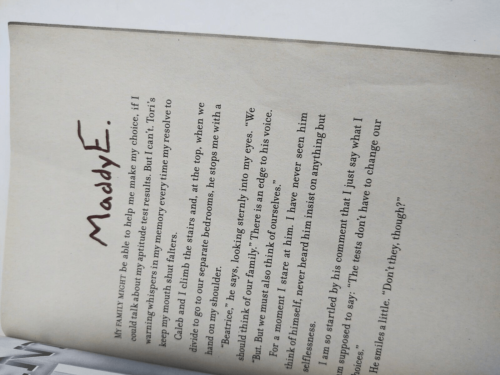 Maddy E.
MY FAMILY MIGHT be able to help me make my choice, if I
could talk about my aptitude test results. But I can't. Tori's
warning whispers in my memory every time my resolve to
keep my mouth shut falters.
Caleb and I climb the stairs and, at the top, when we
divide to go to our separate bedrooms, he stops me with a
hand on my shoulder.
"Beatrice," he says, looking sternly into my eyes. "We
should think of our family." There is an edge to his voice.
"But. But we must also think of ourselves."
For a moment I stare at him. I have never seen him
think of himself, never heard him insist on anything but
selflessness.
I am so startled by his comment that I just say what I
m supposed to say: "The tests don't have to change our
hoices."
He smiles a little. "Don't they, though?"